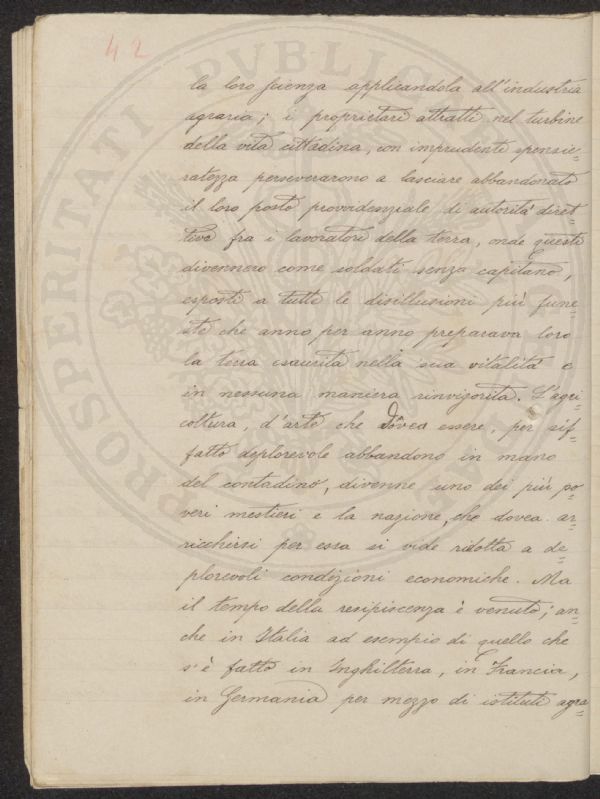 42
la loro scienza applicandola all'industria
agraria; i proprietari attratti nel turbine
della vita cittadina, con imprudente spensie=
ratezza perseverarono a lasciare abbandonato
il loro posto provvidenziale di autorità diret=
tiva fra i lavoratori della terra, onde questi
divennero come soldati senza capitano,
esposti a tutte le disillusioni più fune=
ste che anno per anno preparava loro
la terra esaurita nella sua vitalità e
in nessuna maniera rinvigorita. L'agri=
coltura, d'arte che dovea essere, per sif=
fatto deplorevole abbandono in mano
del contadino, divenne uno dei più po=
veri mestieri e la nazione, che dovea ar=
ricchirsi per essa si vide ridotta a de=
plorevoli condizioni economiche. Ma
il tempo della resipiscenza è venuto; an=
che in Italia ad esempio di quello che
s'è fatto in Inghilterra, in Francia,
in Germania per mezzo di istituti agra=
PROSPERITATI PVBLICAE